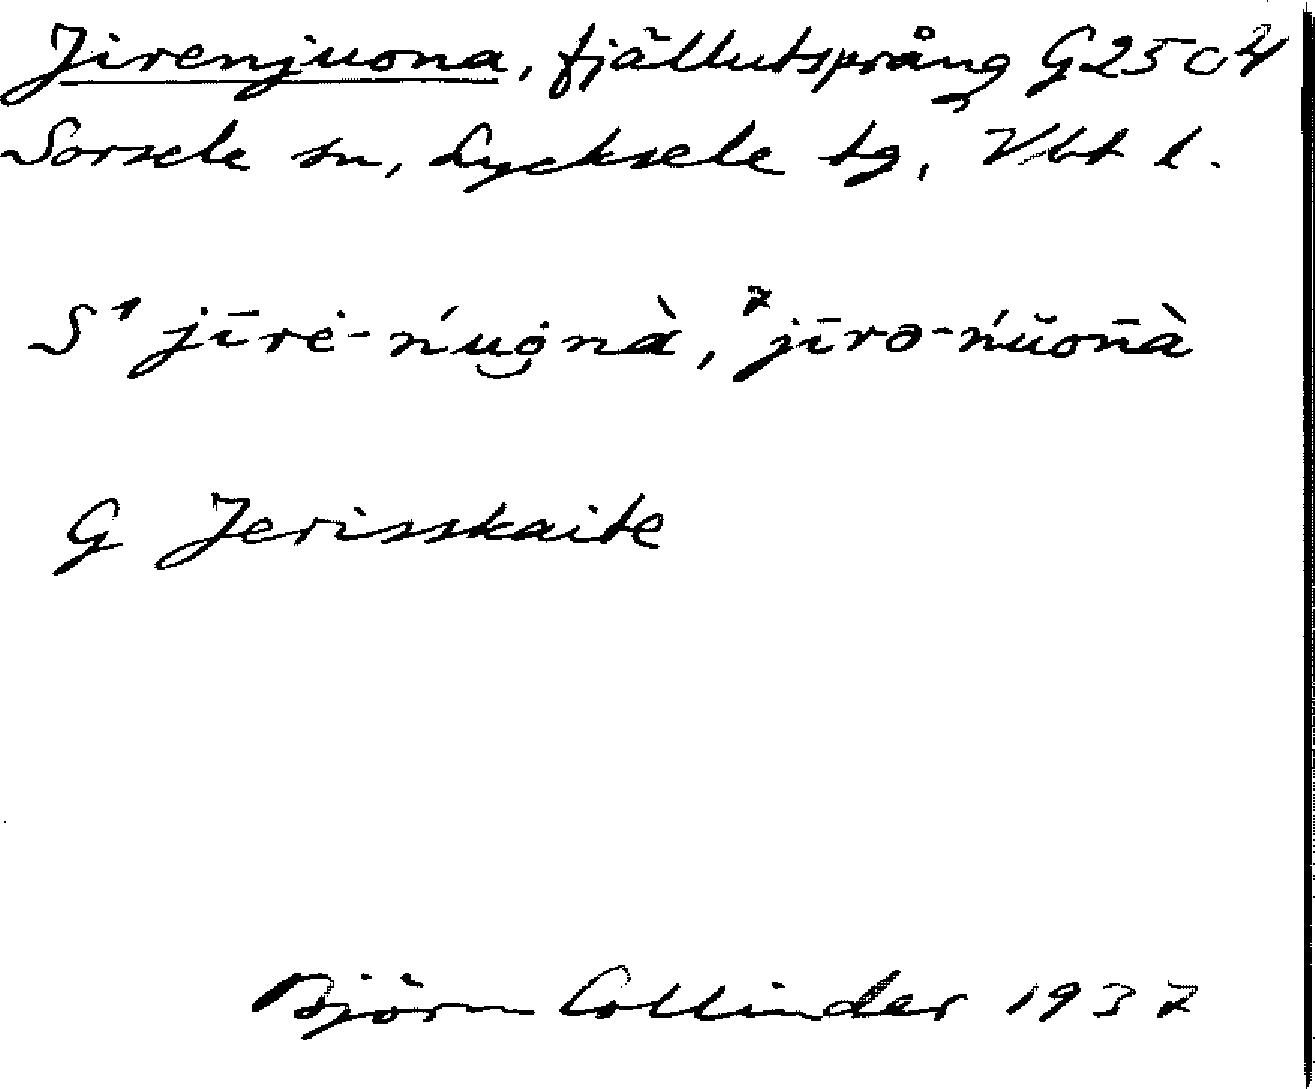 Jirenjuona, fjällutsprång G25c4
Sorsele sn, Lycksele tg, Vbt l.
S¹ jīrė-ńuȯnà, ⁷jīrə-ńŭōnà
G Jerisskaite
Björn Collinder 1937